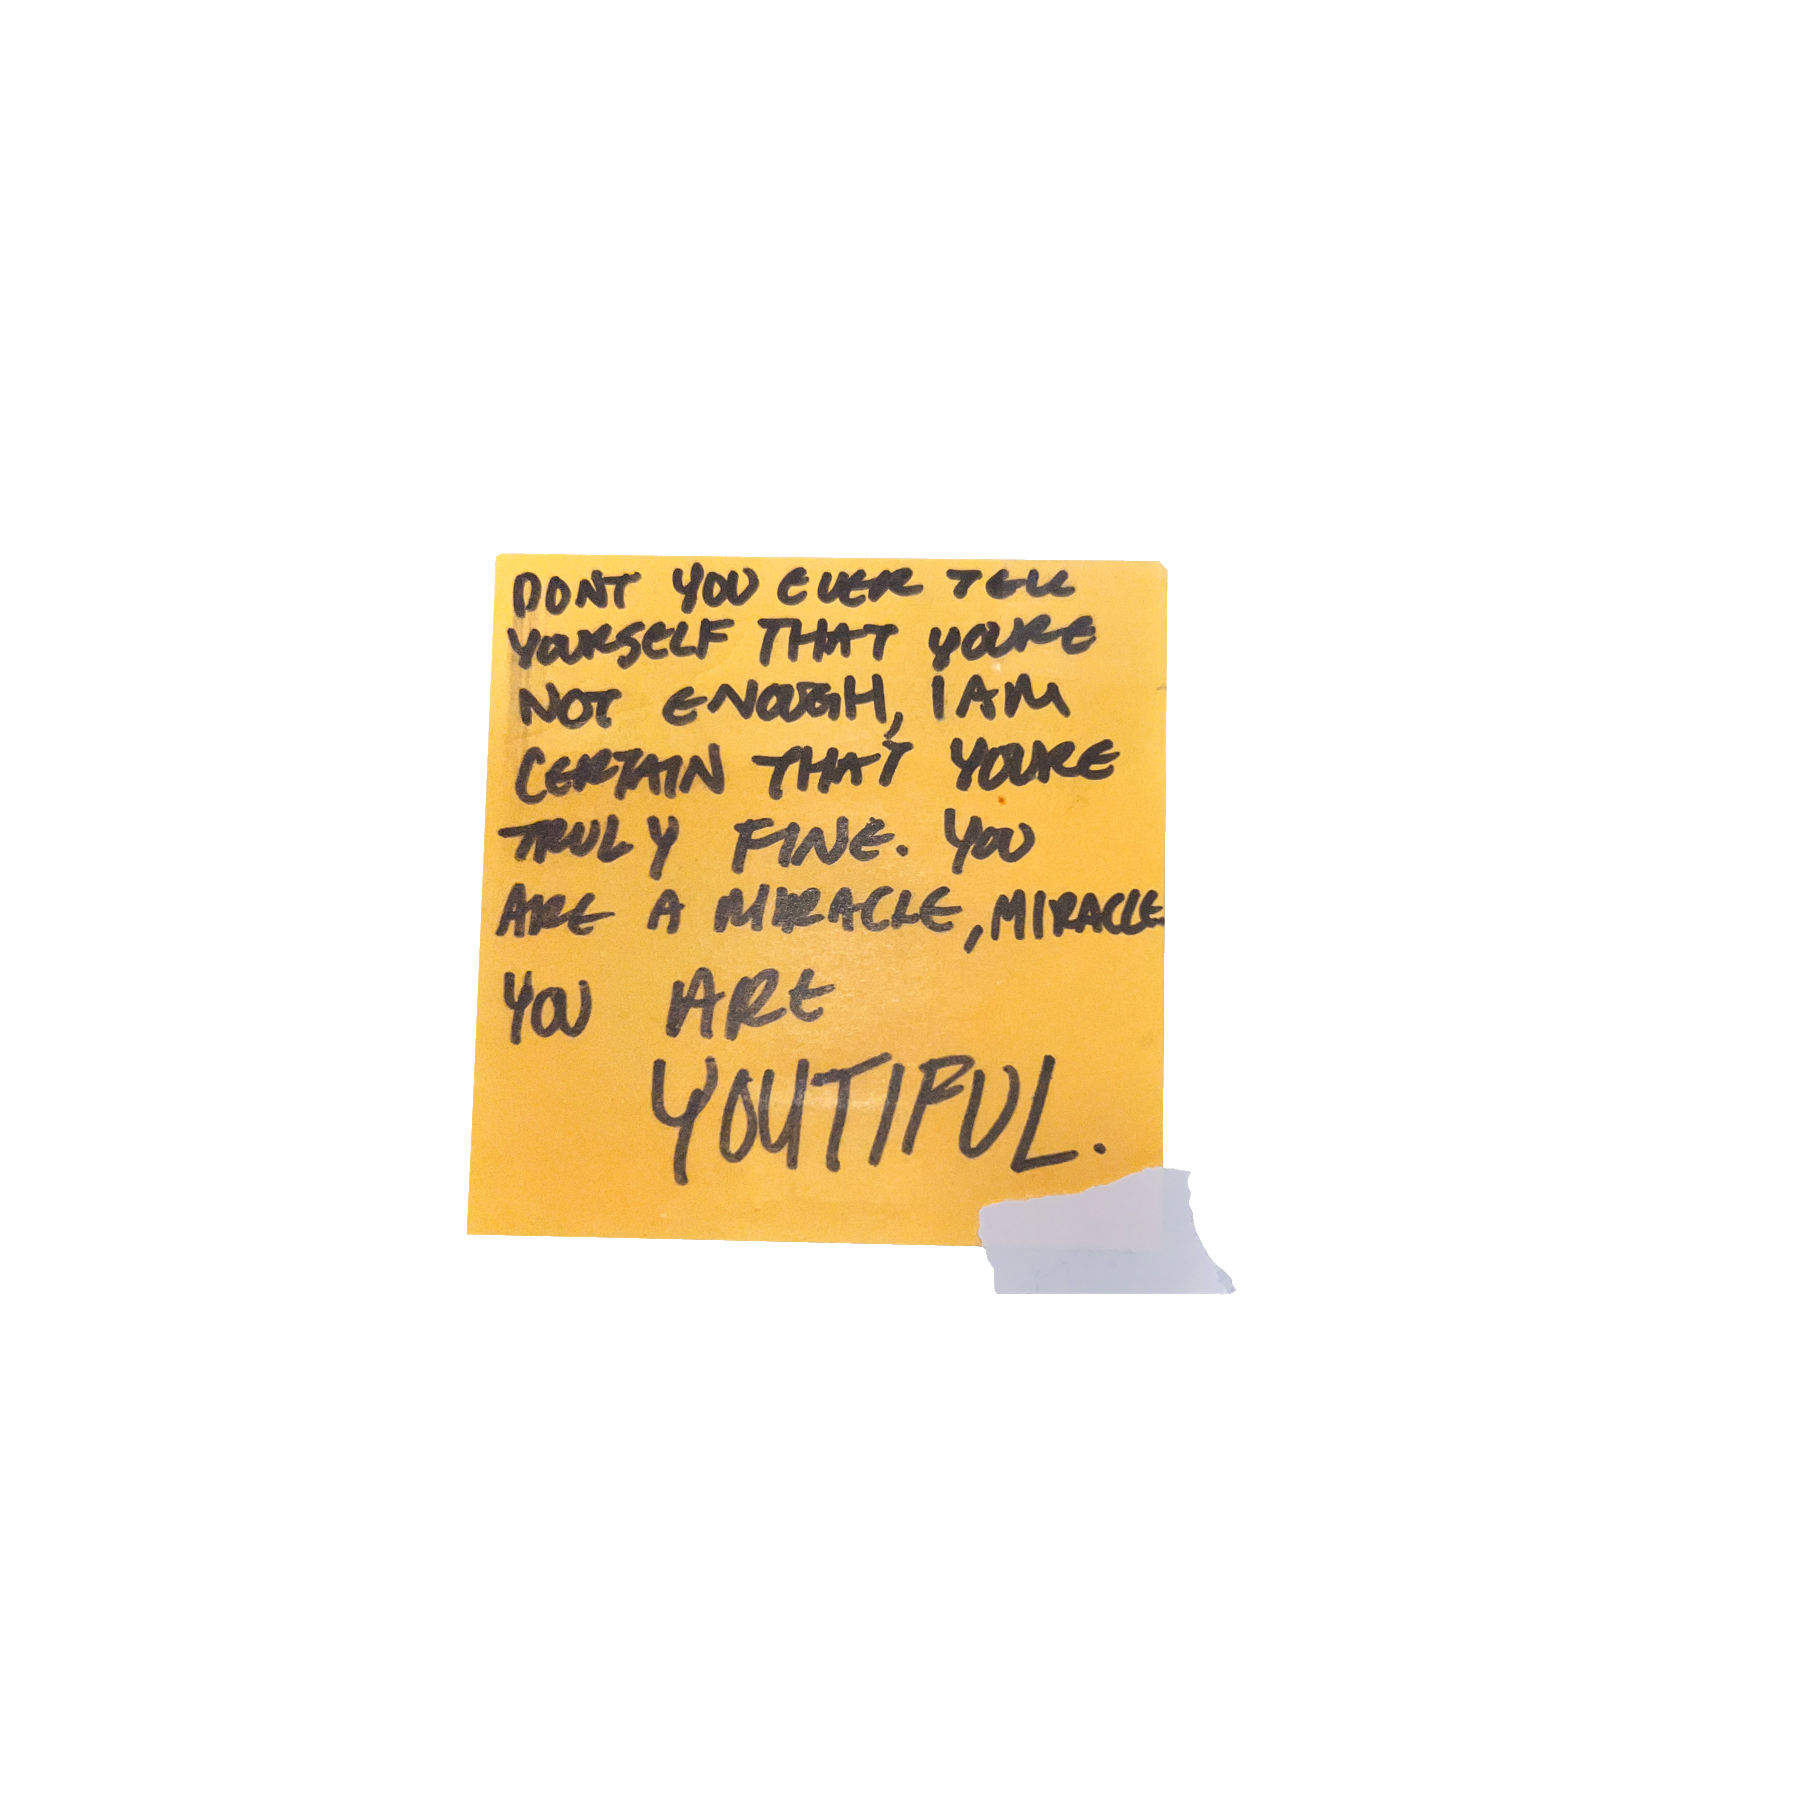 DONT YOU EVER TELL
YOURSELF THAT YOURE
NOT ENOUGH, I AM
CERTAIN THAT YOURE
TRULY FINE. YOU
ARE A MIRACLE, MIRACLE
YOU ARE
YOUTIFUL.